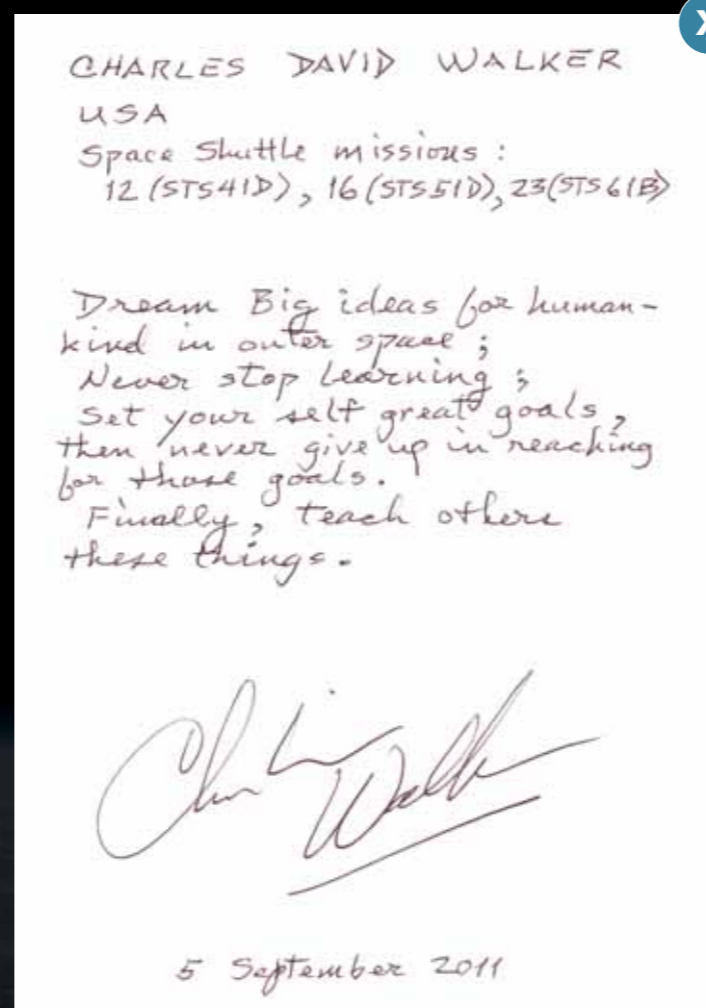 CHARLES DAVID WALKER
USA
Space Shuttle missions :
12 (STS41D), 16 (STS51D), 23 (STS61B)
Dream Big ideas for human-
kind in outer space ;
Never stop learning ;
Set your self great goals,
then never give up in reaching
for those goals.
Finally, teach others
these things.
Charlie Walker
5 September 2011